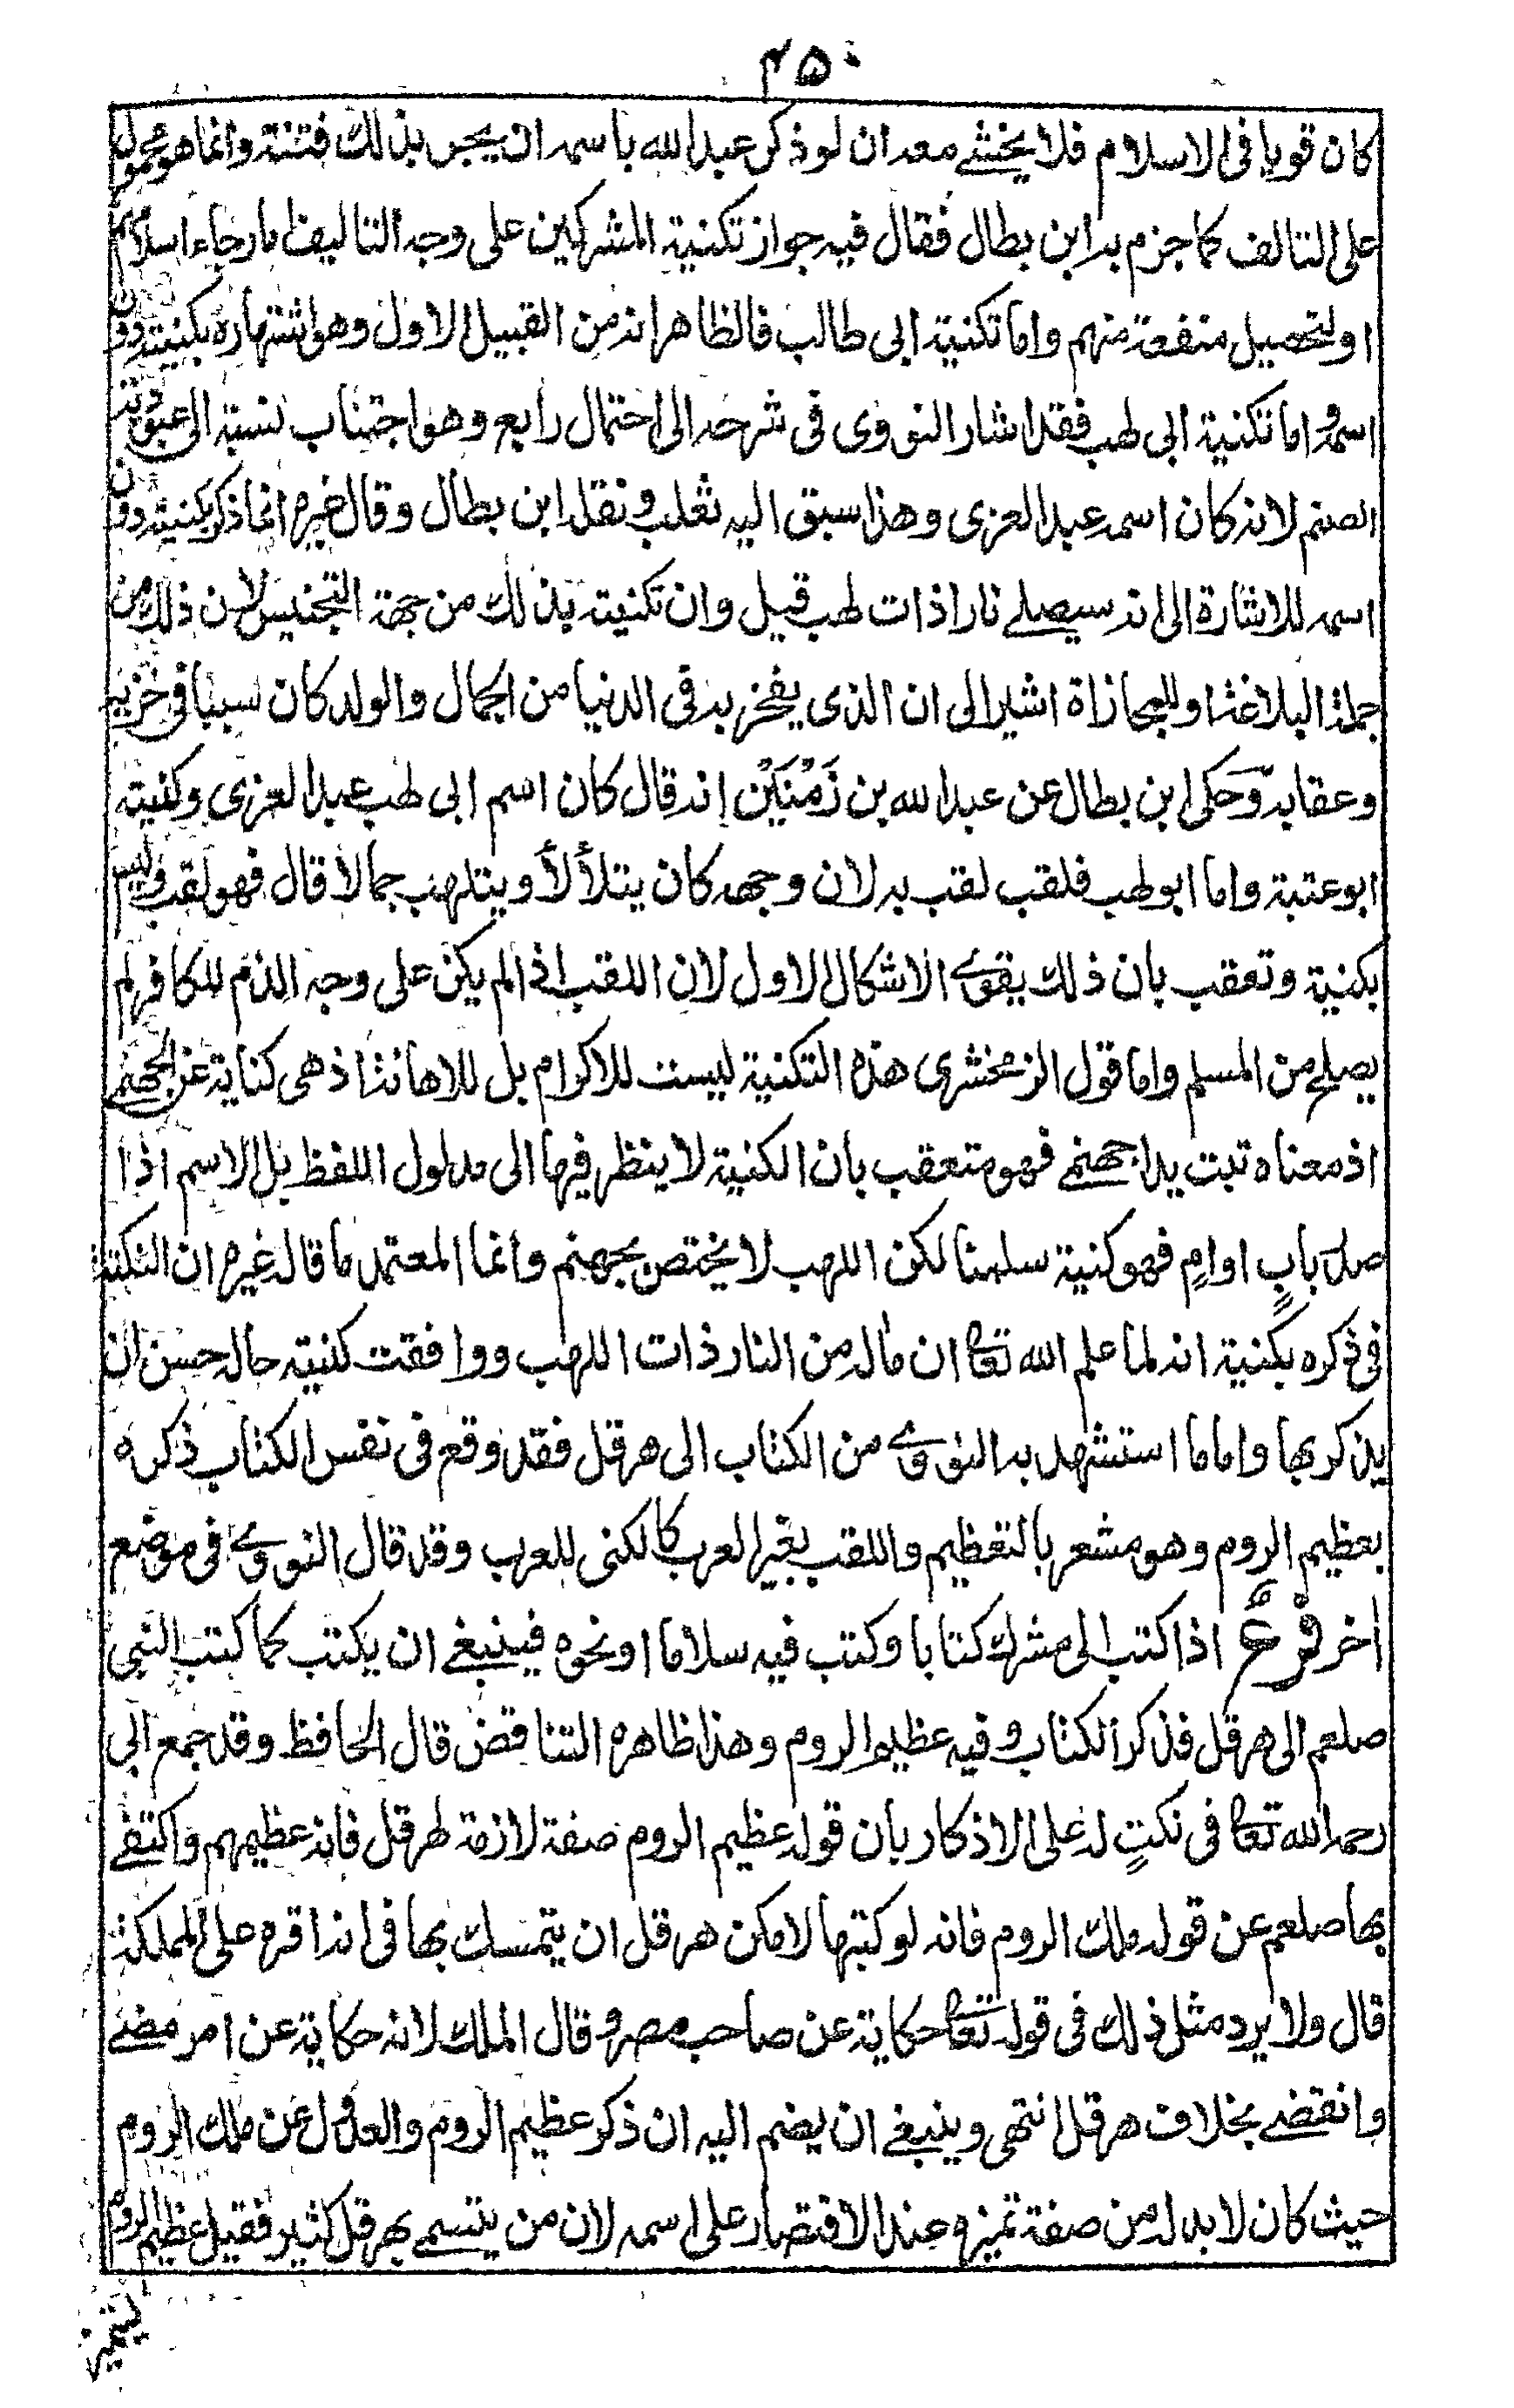 ٢٥٠
كان قويا فى الاسلام فلا يخشے معه ان لو ذكر عبد الله باسمه ان يجر بذلك فتنة وانما هو محمول
على التالف كما جزم به ابن بطال فقال فيه جواز تكنية المشركين على وجه التاليف اما رجاء اسلامهم
او لتحصيل منفعة منهم واما تكنية ابى طالب فالظاهر انه من القبيل الاول وهو اشتهاره بكنيته دون
اسمه واما تكنية ابى لهب فقد اشار النووى فى شرحه الى احتمال رابع وهو اجتناب نسبته الى عبودية
الصنم لانه كان اسمه عبد العزى وهذا سبق اليه ثعلب ونقله ابن بطال وقال غيره انما ذكر بكنيته دون
اسمه للاشارة الى انه سيصلے نارا ذات لهب قيل وان تكنيته بذلك من جهة التجنيس لان ذلك من
جملة البلاغة او للمجازاة اشير الى ان الذى يفخر به فى الدنيا من الجمال والولد كان سببا فى خزيه
وعقابه وحكى ابن بطال عن عبد الله بن زَمْنَيْن انه قال كان اسم ابى لهب عبد العزى وكنيته
ابو عتبة واما ابو لهب فلقب لقب به لان وجهه كان يتلألأ ويتلهب جمالا قال فهو لقب وليس
بكنية وتعقب بان ذلك يقوے الاشكال الاول لان اللقب اذا لم يكن على وجه الذم للكافر لم
يصلح من المسلم واما قول الزمخشرى هذه التكنية ليست للاكرام بل للاهانة اذ هى كناية عن الجهنم
اذ معناه تبت يدا جهنم فهو متعقب بان الكنية لا ينظر فيها الى مدلول اللفظ بل الاسم اذا
صدّ بابٍ او امٍ فهو كنية سلمنا لكن اللهب لا يختص بجهنم وانما المعتمد ما قاله غيره ان النكتة
فى ذكره بكنية انه لما علم الله تعا ان ماله من النار ذات اللهب ووافقت كنيته حاله حسن ان
يذكر بها واما ما استشهد به النووے من الكتاب الى هرقل فقد وقع فى نفس الكتاب ذكره
بعظيم الروم وهو مشعر بالتعظيم واللقب بغير العرب كالكنى للعرب وقد قال النووے فى موضع
اخر فرع اذا كتب الى مشرك كتابا وكتب فيه سلاما او نحوه فينبغے ان يكتب كما كتب النبى
صلعم الى هرقل فذكر الكتاب وفيه عظيم الروم وهذا ظاهره التناقض قال الحافظ وقد جمع ابى
رحمه الله تعا فى نكتٍ له على الاذكار بان قوله عظيم الروم صفة لازمة لهرقل فانه عظيمهم واكتفے
بها صلعم عن قوله ملك الروم فانه لو كتبها لامكن هرقل ان يتمسك بها فى انه اقره على المملكة
قال ولا يرد مثل ذلك فى قوله تعا حكاية عن صاحب مصر وقال الملك لانه حكاية عن امر مضے
وانقضے بخلاف هرقل انتهى وينبغے ان يضم اليه ان ذكر عظيم الروم والعدول عن ملك الروم
حيث كان لا بد له من صفة تميزه عند الاقتصار على اسمه لان من يتسمے بهرقل كثير فقيل عظيم الروم
ليتميز